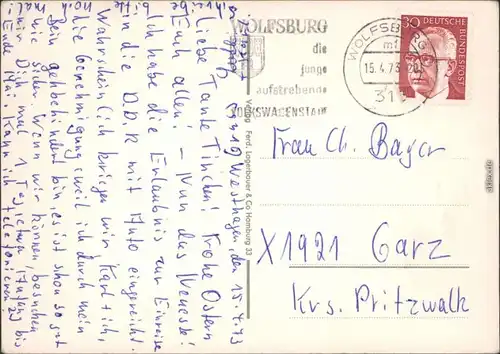 WOLFSBURG
die
junge
aufstrebende
VOLKSWAGENSTADT
WOLFSBURG
15.4.73
30
DEUTSCHE
BUNDESPOST
Verlag Ferd. Lagerbauer & Co Hamburg 33
Frau Ch. Bayer
X1921 Garz
Krs. Pritzwalk
Westhagen, den 15.4.73
Liebe Tante Tinchen! Frohe Ostern
Euch allen! – Nun das Neueste:
Ich habe die Erlaubnis zur Einreise
in die D.D.R. mit Auto eingereicht.
Wahrscheinlich kriegen wir, Karl + ich,
die Genehmigung weil ich durch mein
Bein gehbehindert bin, es ist schon so gut
wie sicher. Wenn wir können, besuchen
wir Dich mal 1 Tag
Ende Mai. Kann ich telefonieren